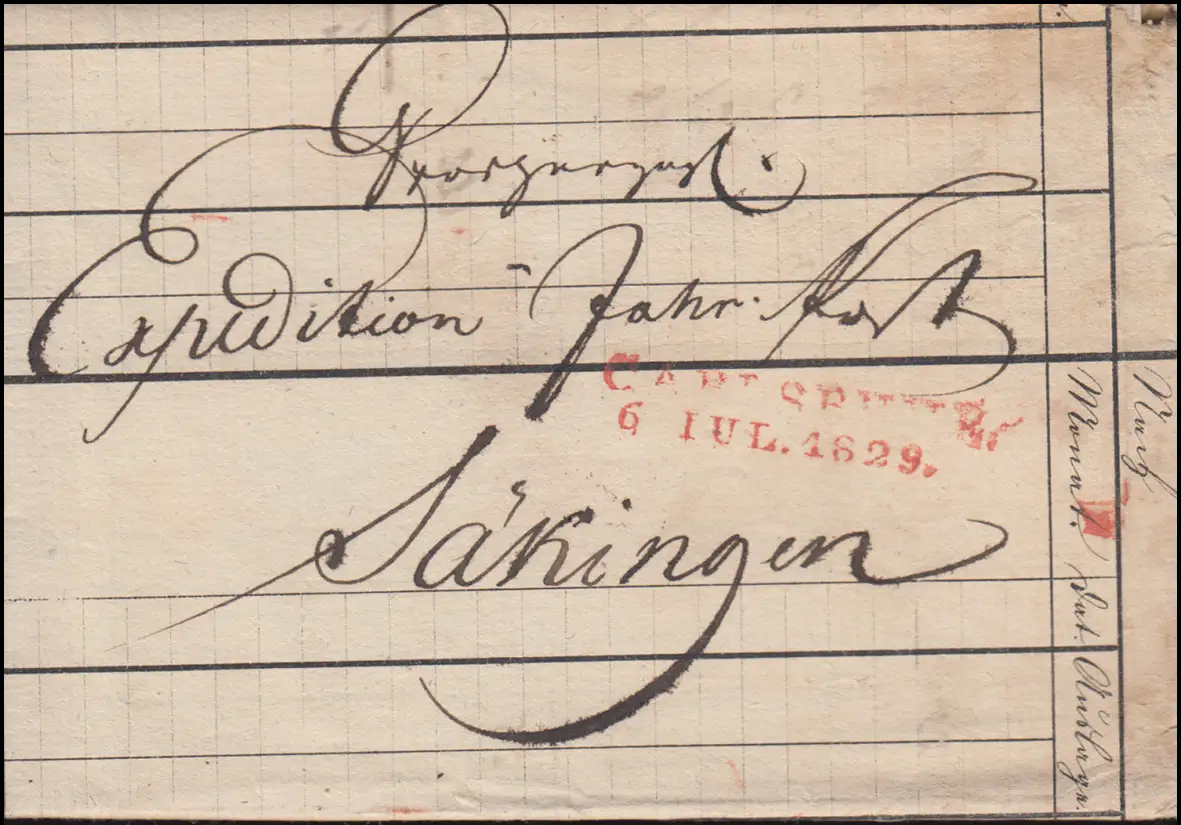 Großherzogl.
Expedition Fahr. Post
CARLSRUHE
6 IUL. 1829.
Säkingen
Nach
Monat. Dat. Auslage.